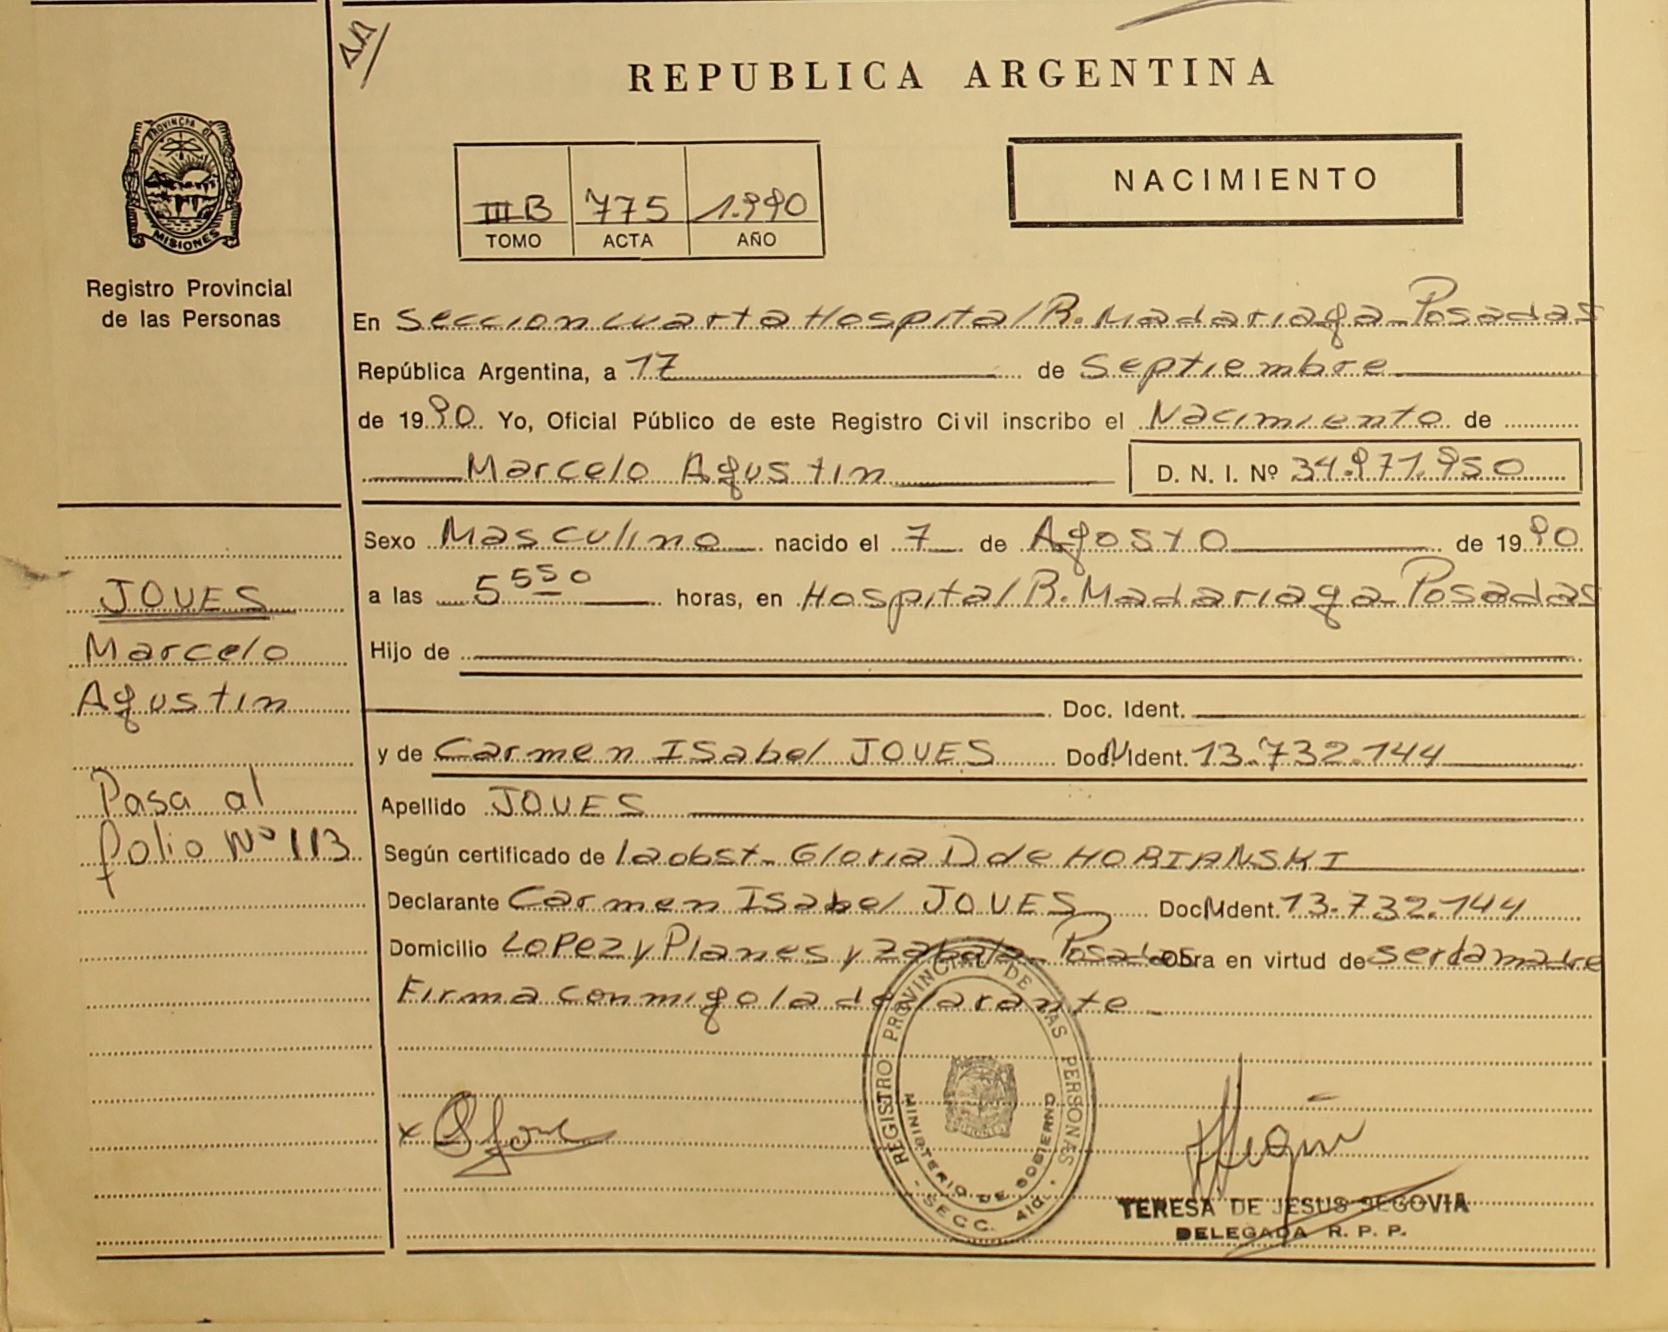 REPUBLICA ARGENTINA
PROVINCIA DE
MISIONES
Registro Provincial
de las Personas
III B 775 1.990
TOMO ACTA AÑO
NACIMIENTO
En Seccion cuarta Hospital R. Madariaga - Posadas
República Argentina, a 17 de Septiembre
de 1990. Yo, Oficial Público de este Registro Civil inscribo el Nacimiento de
Marcelo Agustin D. N. I. Nº 34.971.950
Sexo Masculino nacido el 7 de Agosto de 1990
a las 5 55 0 horas, en Hospital R. Madariaga - Posadas
Hijo de
Doc. Ident.
y de Carmen Isabel JOUES Doc. Ident. 13.732.144
Apellido JOUES
Según certificado de la obst. Gloria D de HORIANSKI
Declarante Carmen Isabel JOUES Doc. Ident. 13.732.144
Domicilio Lopez y Planes y Zabala - Posadas Obra en virtud de ser la madre
Firma conmigo la declarante
JOUES
Marcelo
Agustin
Pasa al
folio Nº 113
REGISTRO PROVINCIAL DE LAS PERSONAS
MINISTERIO DE GOBIERNO
SECC. 4ta.
TERESA DE JESUS SEGOVIA
DELEGADA R. P. P.